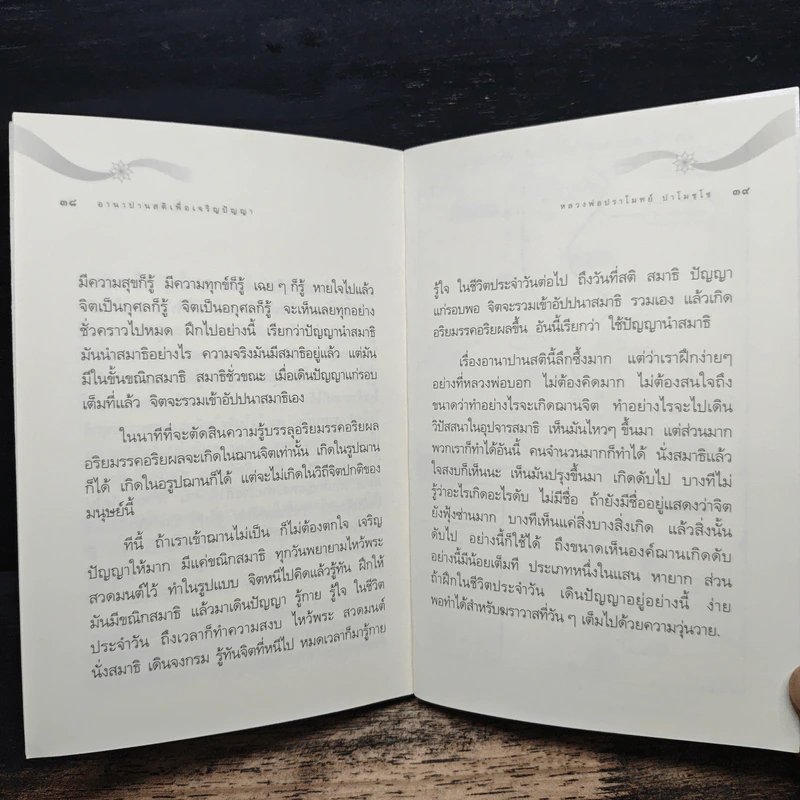 ๓๘ อานาปานสติเพื่อเจริญปัญญา
มีความสุขก็รู้ มีความทุกข์ก็รู้ เฉย ๆ ก็รู้ หายใจไปแล้ว
จิตเป็นกุศลก็รู้ จิตเป็นอกุศลก็รู้ จะเห็นเลยทุกอย่าง
ชั่วคราวไปหมด ฝึกไปอย่างนี้ เรียกว่าปัญญานำสมาธิ
มันนำสมาธิอย่างไร ความจริงมันมีสมาธิอยู่แล้ว แต่มัน
มีในขั้นขณิกสมาธิ สมาธิชั่วขณะ เมื่อเดินปัญญาแก่รอบ
เต็มที่แล้ว จิตจะรวมเข้าอัปปนาสมาธิเอง
ในนาทีที่จะตัดสินความรู้บรรลุอริยมรรคอริยผล
อริยมรรคอริยผลจะเกิดในฌานจิตเท่านั้น เกิดในรูปฌาน
ก็ได้ เกิดในอรูปฌานก็ได้ แต่จะไม่เกิดในวิถีจิตปกติของ
มนุษย์นี้
ทีนี้ ถ้าเราเข้าฌานไม่เป็น ก็ไม่ต้องตกใจ เจริญ
ปัญญาให้มาก มีแค่ขณิกสมาธิ ทุกวันพยายามไหว้พระ
สวดมนต์ไว้ ทำในรูปแบบ จิตหนีไปคิดแล้วรู้ทัน ฝึกให้
มันมีขณิกสมาธิ แล้วมาเดินปัญญา รู้กาย รู้ใจ ในชีวิต
ประจำวัน ถึงเวลาก็ทำความสงบ ไหว้พระ สวดมนต์
นั่งสมาธิ เดินจงกรม รู้ทันจิตที่หนีไป หมดเวลาก็มารู้กาย
หลวงพ่อปราโมทย์ ปาโมชฺโช ๓๙
รู้ใจ ในชีวิตประจำวันต่อไป ถึงวันที่สติ สมาธิ ปัญญา
แก่รอบพอ จิตจะรวมเข้าอัปปนาสมาธิ รวมเอง แล้วเกิด
อริยมรรคอริยผลขึ้น อันนี้เรียกว่า ใช้ปัญญานำสมาธิ
เรื่องอานาปานสตินี้ลึกซึ้งมาก แต่ว่าเราฝึกง่ายๆ
อย่างที่หลวงพ่อบอก ไม่ต้องคิดมาก ไม่ต้องสนใจถึง
ขนาดว่าทำอย่างไรจะเกิดฌานจิต ทำอย่างไรจะไปเดิน
วิปัสสนาในอุปจารสมาธิ เห็นมันไหวๆ ขึ้นมา แต่ส่วนมาก
พวกเราก็ทำได้อันนี้ คนจำนวนมากก็ทำได้ นั่งสมาธิแล้ว
ใจสงบก็เห็นนะ เห็นมันปรุงขึ้นมา เกิดดับไป บางทีไม่
รู้ว่าอะไรเกิดอะไรดับ ไม่มีชื่อ ถ้ายังมีชื่ออยู่แสดงว่าจิต
ยังฟุ้งซ่านมาก บางทีเห็นแค่สิ่งบางสิ่งเกิด แล้วสิ่งนั้น
ดับไป อย่างนี้ก็ใช้ได้ ถึงขนาดเห็นองค์ฌานเกิดดับ
อย่างนี้มีน้อยเต็มที ประเภทหนึ่งในแสน หายาก ส่วน
ถ้าฝึกในชีวิตประจำวัน เดินปัญญาอยู่อย่างนี้ ง่าย
พอทำได้สำหรับฆราวาสที่วัน ๆ เต็มไปด้วยความวุ่นวาย.